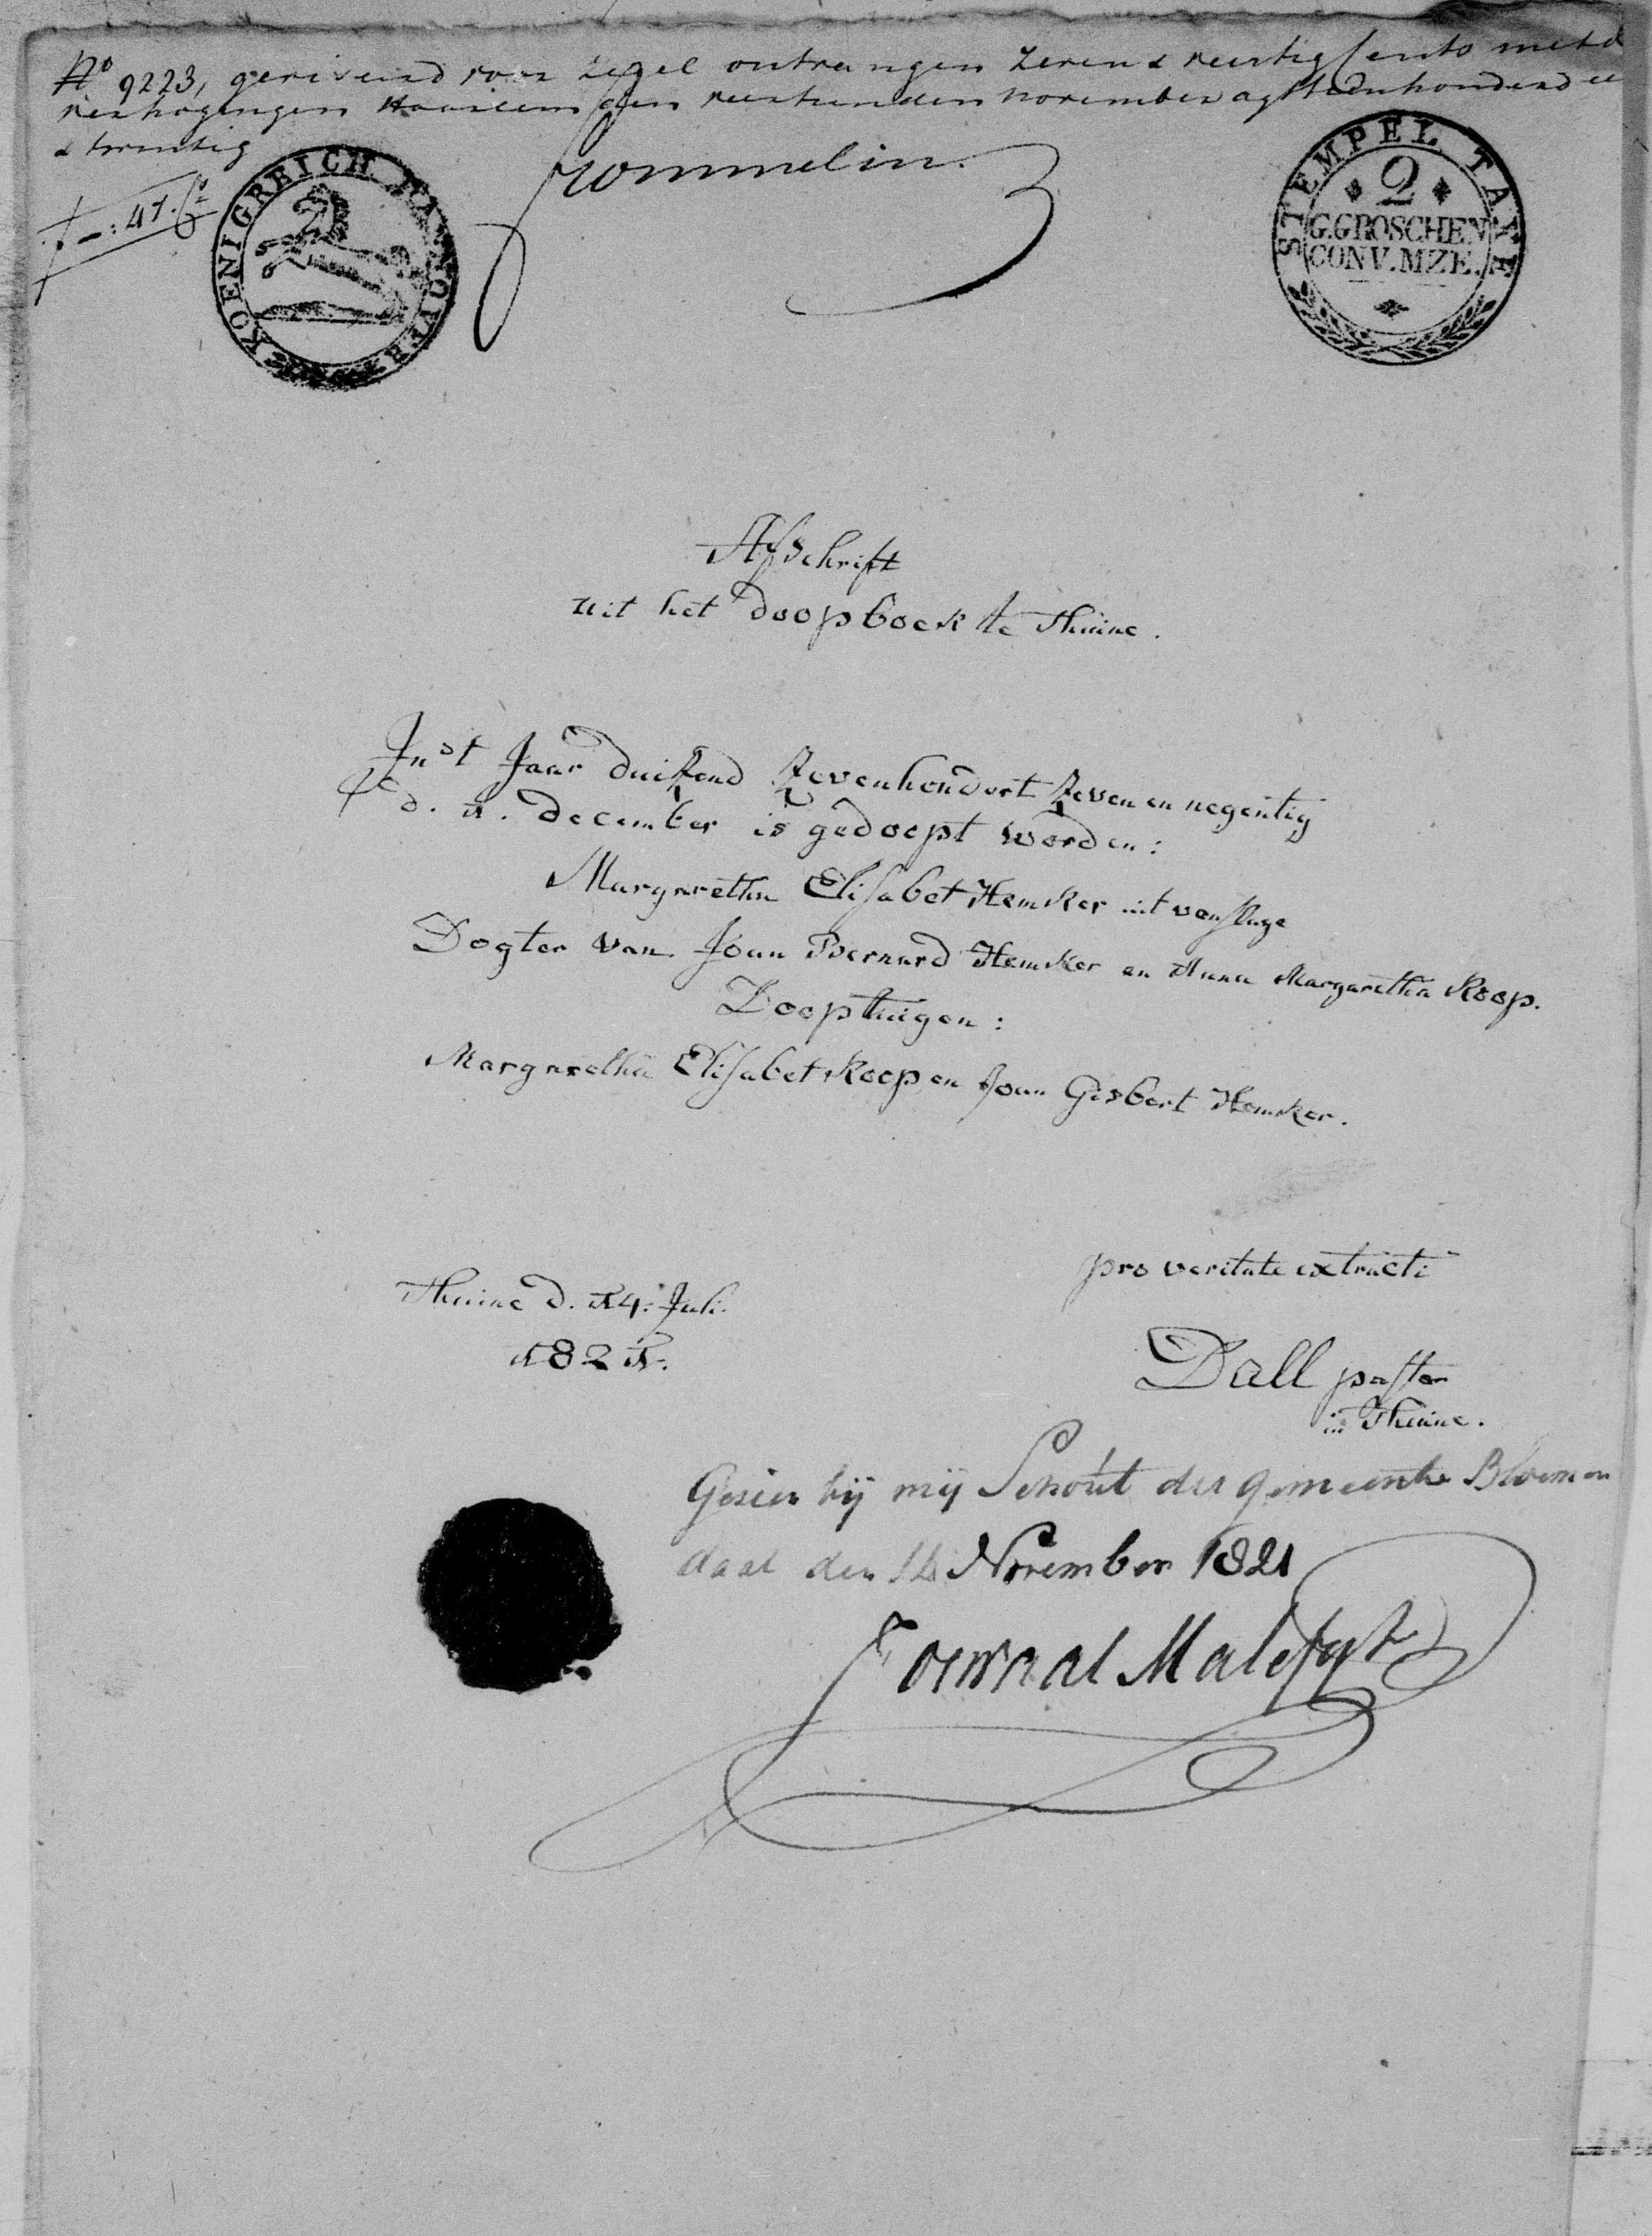 No 9223, geviseerd voor zegel ontvangen zeven & veertig Cents met d
verhogingen Haarlem den veertienden november agttienhonderd ee
& twintig
f -:47.
Crommelin.
KOENIGREICH HANNOVER
STEMPEL TAXE
2
G.GROSCHEN
CONV.MZE.
Afschrift
uit het doopboek te Thuine.
In 't Jaar duizend zevenhondert zeven en negentig
d. 1. december is gedoopt worden:
Margaretha Elisabet Hemker uit venslage
Dogter van Joan Bernard Hemker en Anna Margaretha Koop.
Doopthuigen:
Margaretha Elisabet Koop en Joan Gisbert Hemker.
pro veritate extracti
Thuine d. 14. Juli.
1821.
Dall pastor
in Thuine.
Gesien bij mij Schout der gemeente Bloemen
daal den 14 November 1821